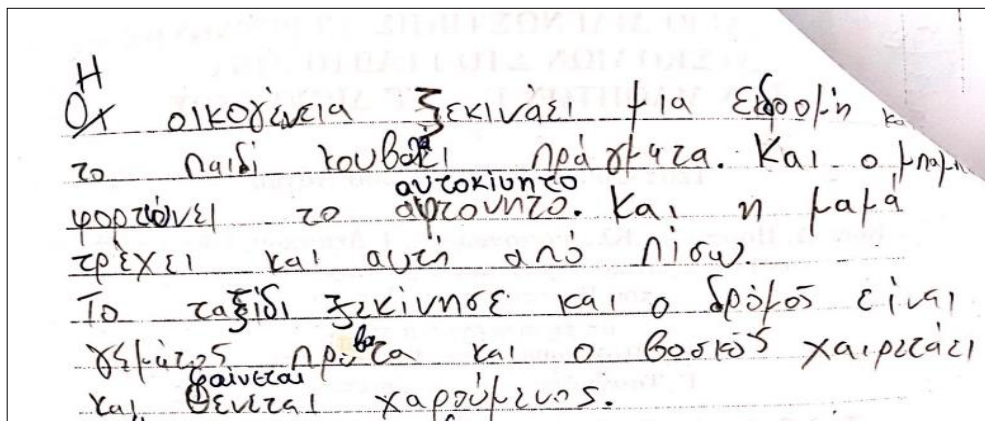 Η
Οι οικογένεια ξεκινάει μια εκδρομή κ
το παιδί κουβαλάει πράγματα. Και ο μπαμ
αυτοκίνητο
φορτώνει το αρτονητο. Και η μαμά
τρέχει και αυτή από πίσω.
Το ταξίδι ξεκίνησε και ο δρόμος είναι
γεμάτος πρόβατα και ο βοσκός χαιρετάει
φαίνεται
και θένεται χαρούμενος.